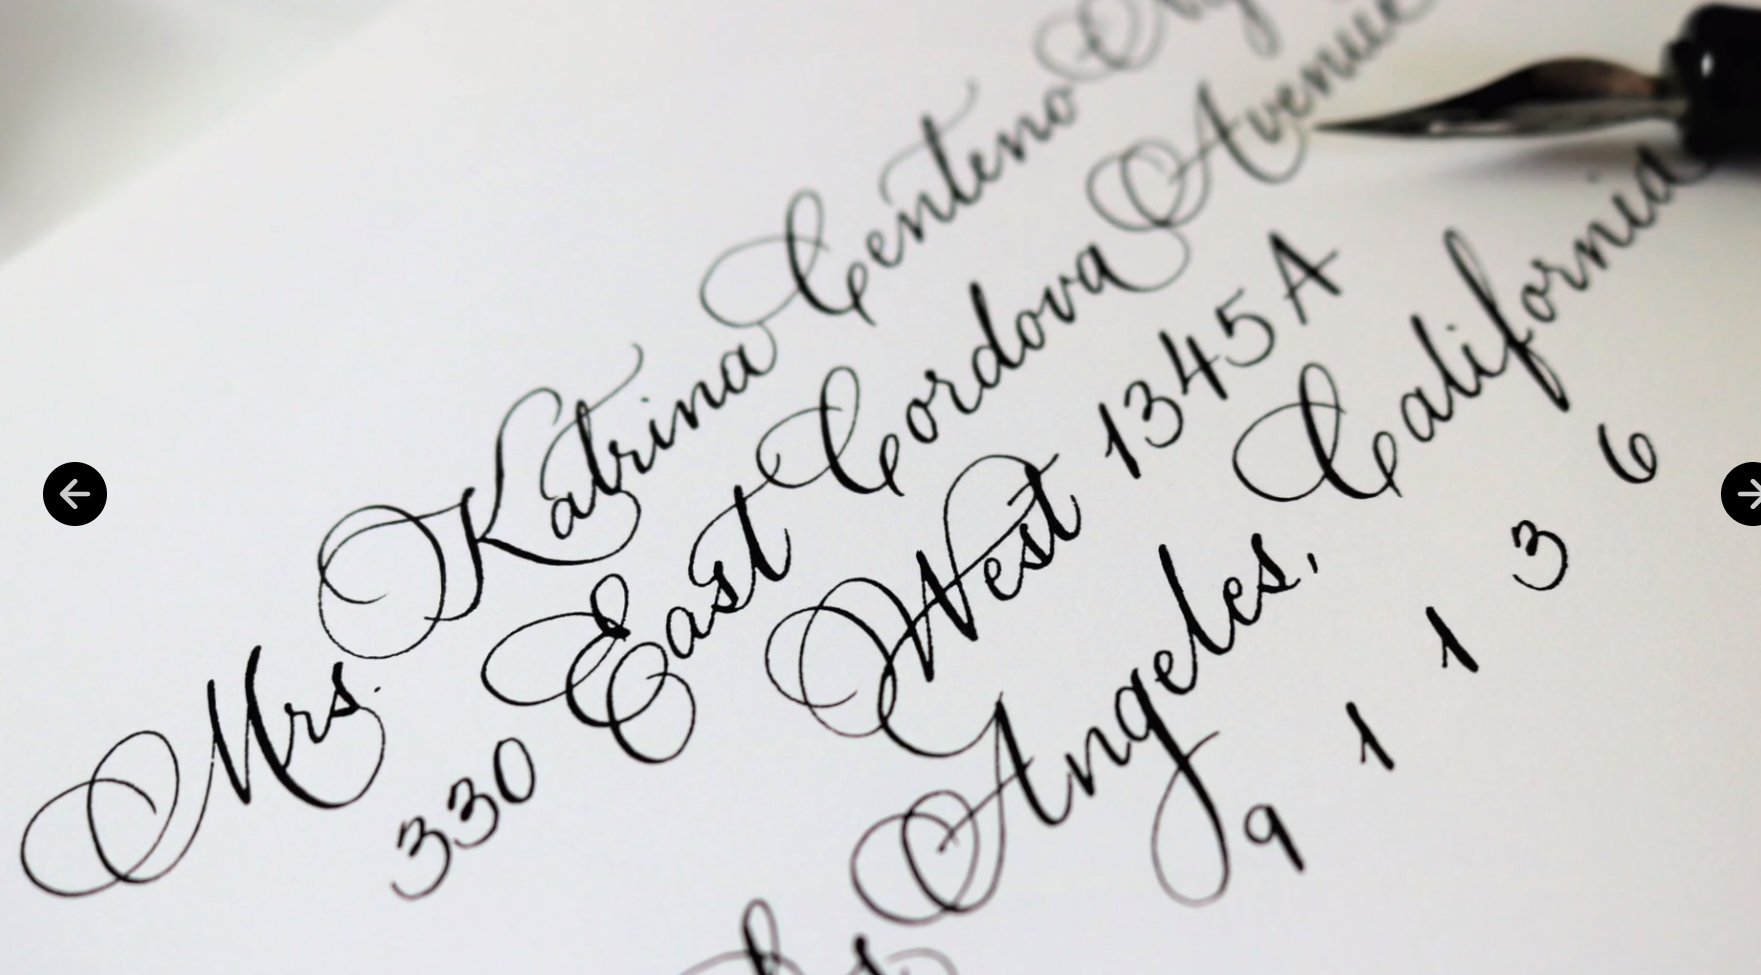 Mrs. Katrina Centeno
330 East Cordova Avenue
West 1345A
Angeles, California
91136